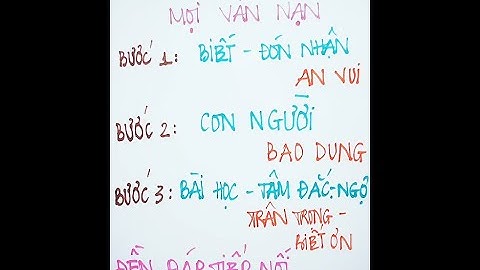 MỌI VẤN NẠN
BƯỚC 1: BIẾT - ĐÓN NHẬN
AN VUI
BƯỚC 2: CON NGƯỜI
BAO DUNG
BƯỚC 3: BÀI HỌC - TÂM ĐẮC-NGỘ
TRÂN TRỌNG -
BIẾT ƠN
ĐỀN ĐÁP TIẾP NỐI